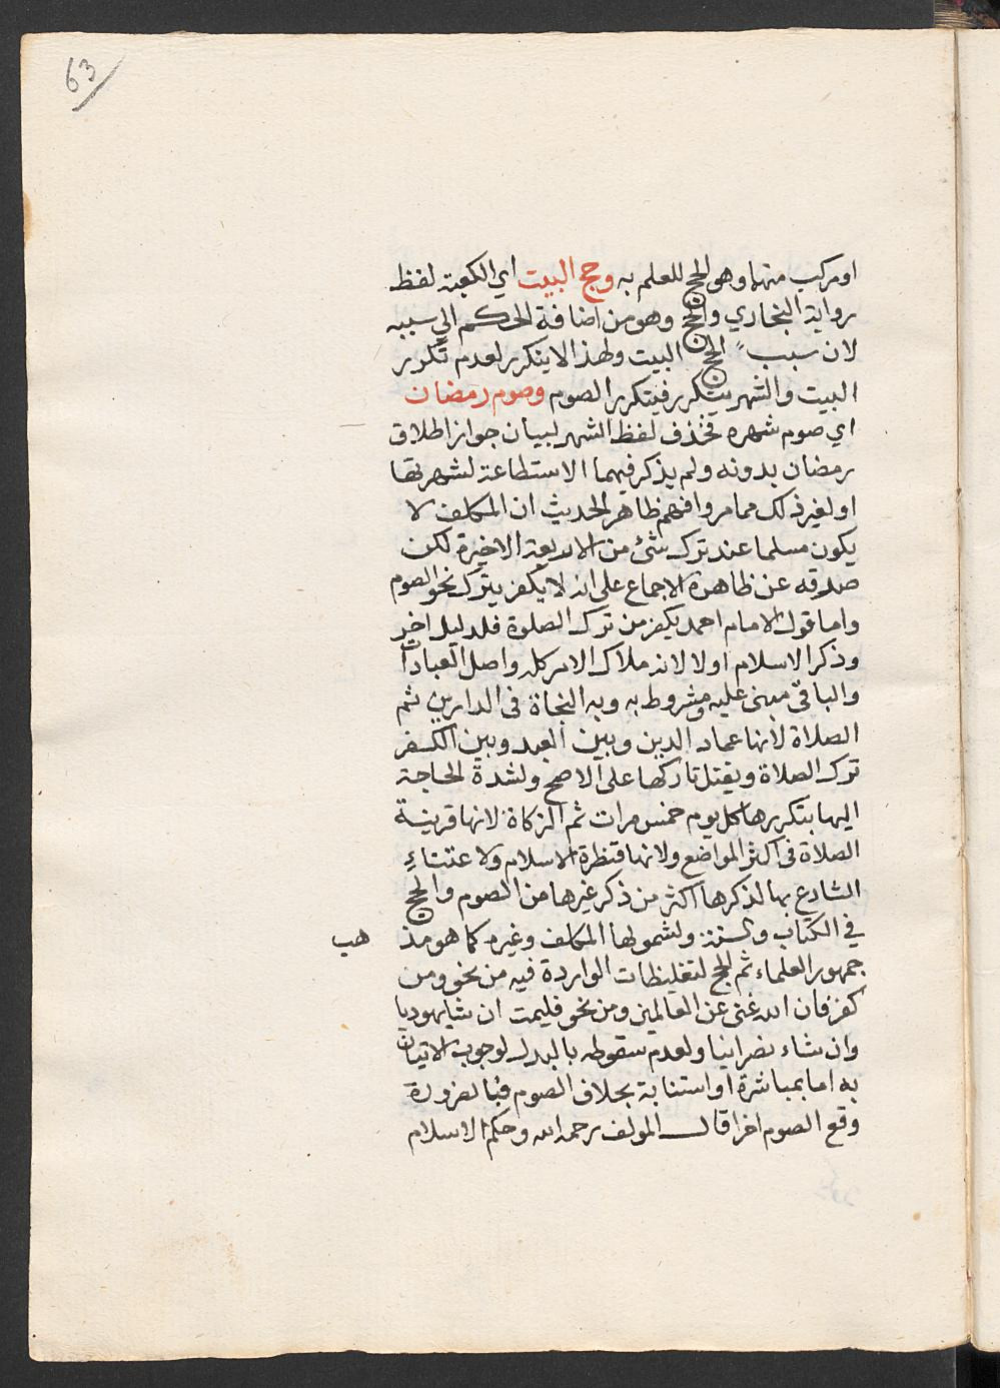 63
او مركب منهما وهو الحج للعلم به وحج البيت اي الكعبة لفظ
رواية البخاري والحج وهو من اضافة الحكم الي سببه
لان سبب الحج البيت ولهذا لا يتكرر لعدم تكرر
البيت والشهر يتكرر فيتكرر الصوم وصوم رمضان
اي صوم شهره فحذف لفظ الشهر لبيان جواز اطلاق
رمضان بدونه ولم يذكر فيهما الاستطاعة لشهرتها
او لغير ذلك مما مر وافهم ظاهر الحديث ان المكلف لا
يكون مسلما عند ترك شئ من الاربعة الاخيرة لكن
صدقه عن ظاهره الاجماع على انه لا يكفر بترك نحو الصوم
واما قول الامام احمد يكفر من ترك الصلوة فلدليل اخر
وذكر الاسلام اولا لانه ملاك الامر كله واصل العبادات
والباقي مبني عليه ومشروط به وبه النجاة في الدارين ثم
الصلاة لانها عماد الدين وبين العبد وبين الكفر
ترك الصلاة ويقتل تاركها على الاصح ولشدة الحاجة
اليها بتكررها كل يوم خمس مرات ثم الزكاة لانها قرينة
الصلاة في اكثر المواضع ولانها قنطرة الاسلام ولاعتناء
الشارع بها لذكرها اكثر من ذكر غيرها من الصوم والحج
في الكتاب والسنة ولشمولها المكلف وغيره كما هو مذ هب
جمهور العلماء ثم الحج لتغليظات الواردة فيه من نحو ومن
كفر فان الله غني عن العالمين ومن نحو فليمت ان شا يهوديا
وان شاء نصرانيا ولعدم سقوطه بالبدل لوجوب الاتيان
به اما بمباشرة او استنابة بخلاف الصوم فبالضرورة
وقع الصوم اخرا قال المولف رحمه الله وحكم الاسلام